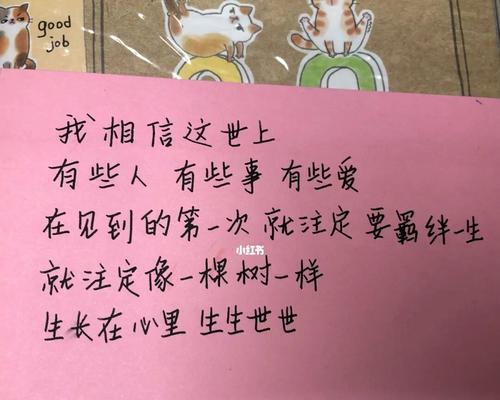 good
job
我相信这世上
有些人 有些事 有些爱
在见到的第一次 就注定 要羁绊一生
小红书
就注定像一棵树一样
生长在心里 生生世世